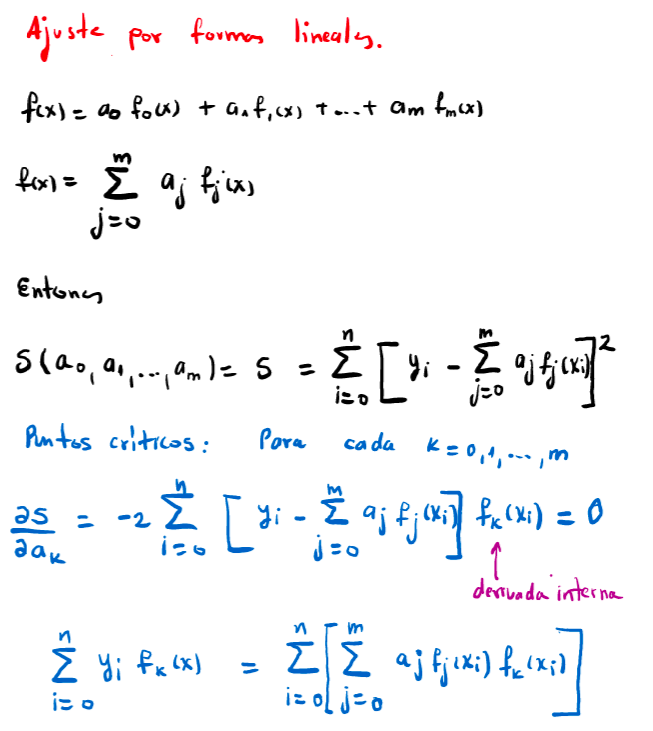 Ajuste por formas lineales.
f(x) = a₀ f₀(x) + a₁ f₁(x) + ... + aₘ fₘ(x)
f(x) = ∑_{j=0}^{m} aⱼ fⱼ(x)
Entonces
S(a₀, a₁, ..., aₘ) = S = ∑_{i=0}^{n} [ yᵢ - ∑_{j=0}^{m} aⱼ fⱼ(xᵢ) ]²
Puntos críticos: Para cada k = 0, 1, ..., m
∂S/∂aₖ = -2 ∑_{i=0}^{n} [ yᵢ - ∑_{j=0}^{m} aⱼ fⱼ(xᵢ) ] fₖ(xᵢ) = 0
↑
derivada interna
∑_{i=0}^{n} yᵢ fₖ(x) = ∑_{i=0}^{n} [ ∑_{j=0}^{m} aⱼ fⱼ(xᵢ) fₖ(xᵢ) ]